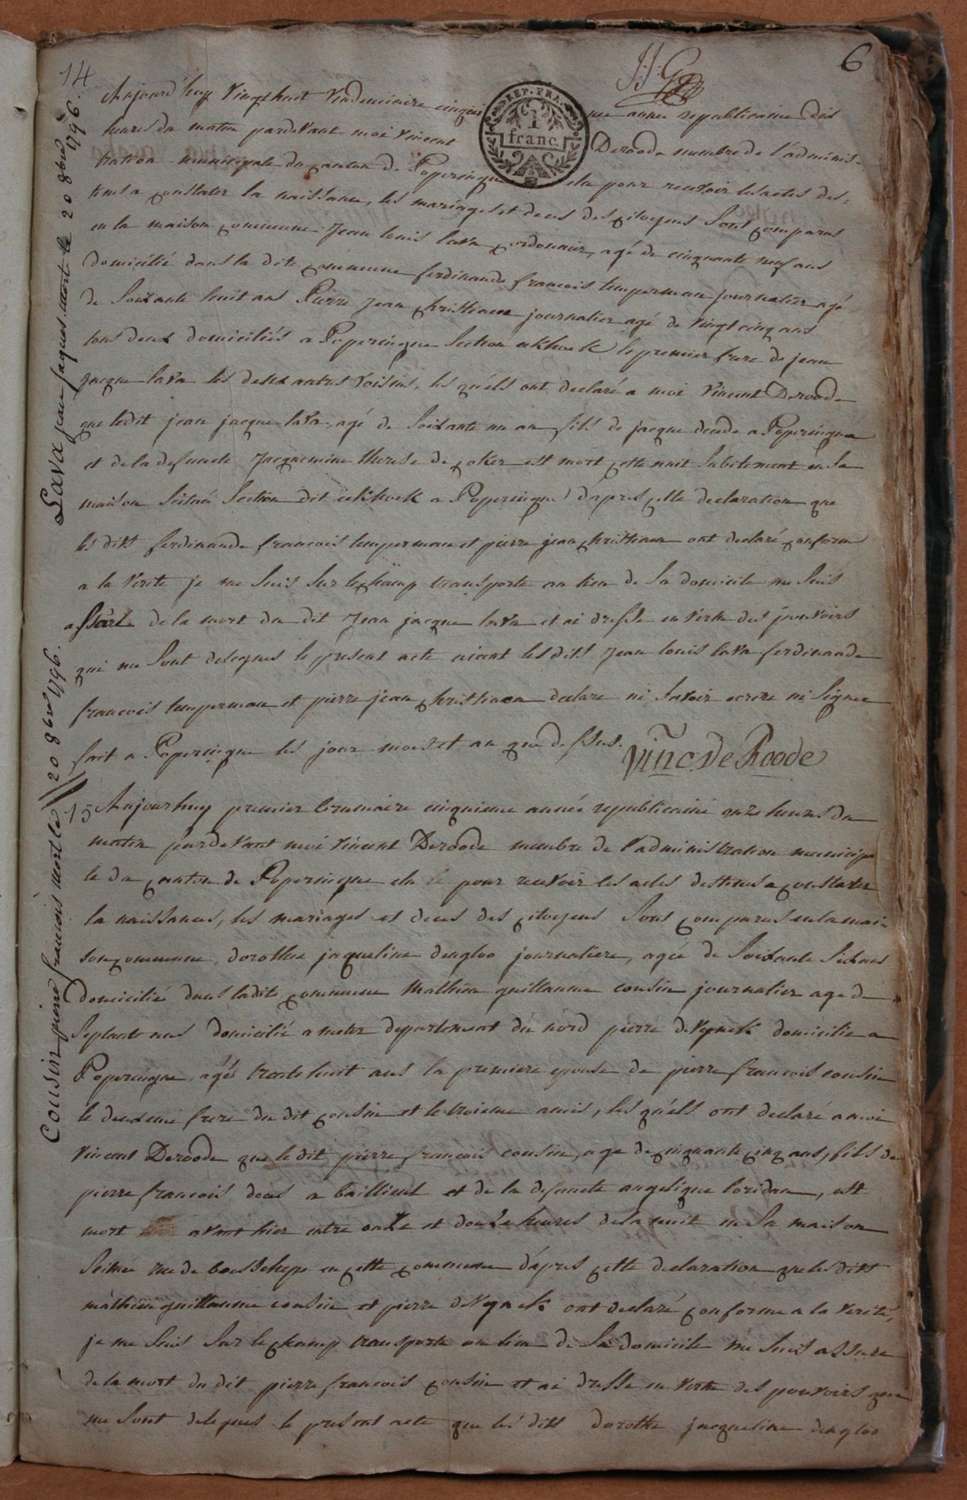 14
6
J. J. G
REP. FRA.
1
franc.
Lava jean jaques mort le 20 8bre 1796.
Aujourd'huy vingt huit vindemiaire cinquieme année republicaine dix
heures du matin pardevant moi vincent Deroode membre de l'adminis-
tration municipale du canton de Poperingue elu pour recevoir les actes des-
tinés a constater la naissance, les mariages et deces des citoyens sont comparus
en la maison commune Jean louis lava cordonier, agé de cinquante neuf ans
domicilié dans la dite commune ferdinande francois temperman journalier agé
de soixante huit ans Pierre jean christiaen journalier agé de vingt cinq ans
tous deux domiciliés a Poperingue section le premier frere de jean
jacque lava les deux autres voisins, les quels ont declaré a moi vincent Deroode
que ledit jean jacque lava, agé de soixante un an fils de jacque decede a Poperingue
et de la defuncte Jacquemine therese de coker est mort cette nuit subitement en sa
maison section dit a Poperingue d'apres cette declaration que
les dits ferdinande francois temperman et pierre jean christiaen ont declaré conform
a la verité je me suis sur le champ transporte au lieu de sa domicile me suis
assuré de la mort du dit Jean jacque lava et ai dresse en vertu des pouvoirs
qui me sont delegues le present acte aiant les dits Jean louis lava ferdinande
francois temperman et pierre jean christiaen declare ni savoir ecrire ni signer
fait a Poperingue les jour mois et an que dessus. Vinc. De Roode
Cousin pierre francois mort le 20 8bre 1796.
15 Aujourhuy premier brumaire cinquieme année republicaine onze heures du
matin pardevant moi vincent Deroode membre de l'administration municipa
le du canton de Poperingue elu pour recevoir les actes destinés a constater
la naissances, les mariages et deces des citoyens sont comparus en la mai-
son commune, dorothee jaqueline dengloo journaliere, agée de soixante six ans
domicilié dans ladite commune mathieu guillaume cousin journalier age de
septante ans domicilié a meter departement du nord pierre domicilie a
Poperingue, agés trente huit ans la premiere epouse de pierre francois cousin
le deuxieme frere du dit cousin et le troisieme amis, les quels ont declaré a moi
vincent Deroode que le dit pierre francois cousin, age de cinquante cinq ans, fils de
pierre francois deces a bailleul et de la defuncte angelique loridan, est
mort avant hier entre onze et douze heures de la nuit en sa maison
scituee rue de en cette commune d'apres cette declaration que les dits
mathieu guillaume cousin et pierre ont declaré conforme a la verité,
je me suis sur le champ transporte au lieu de sa domicile me suis assure
de la mort du dit pierre francois cousin et ai dresse en vertu des pouvoirs qui
me sont delegues le present acte que les dits dorothe jacqueline dengloo